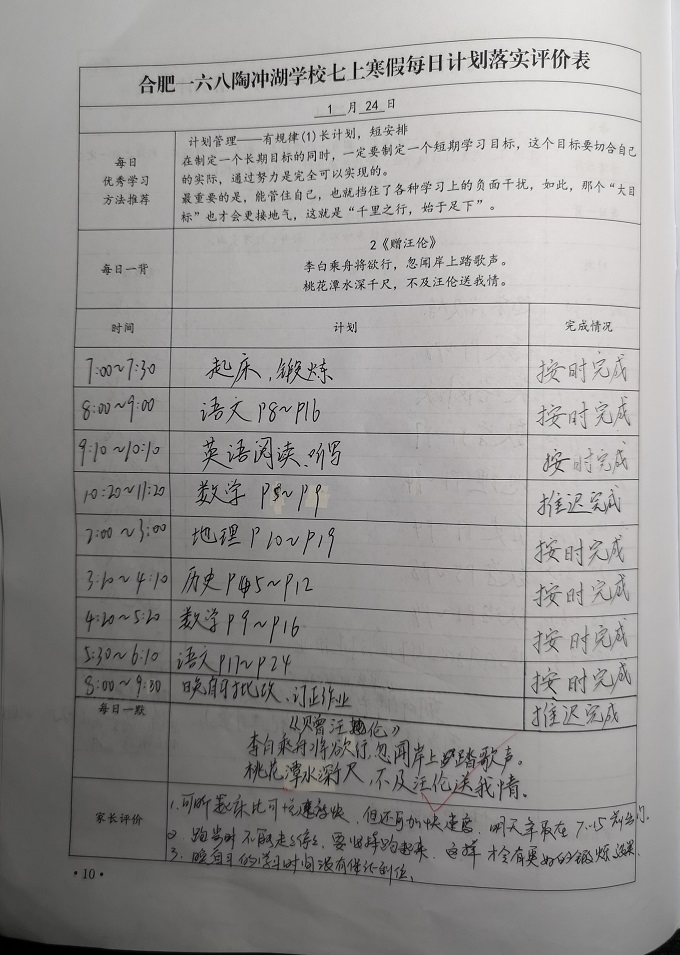 合肥一六八陶冲湖学校七上寒假每日计划落实评价表
1 月 24 日
每日
优秀学习
方法推荐
计划管理——有规律(1)长计划，短安排
在制定一个长期目标的同时，一定要制定一个短期学习目标，这个目标要切合自己
的实际，通过努力是完全可以实现的。
最重要的是，能管住自己，也就挡住了各种学习上的负面干扰，如此，那个“大目
标”也才会更接地气，这就是“千里之行，始于足下”。
每日一背
2《赠汪伦》
李白乘舟将欲行，忽闻岸上踏歌声。
桃花潭水深千尺，不及汪伦送我情。
时间 计划 完成情况
7:00~7:30 起床、锻炼 按时完成
8:00~9:00 语文 P8~P16 按时完成
9:10~10:10 英语阅读、听写 按时完成
10:20~11:20 数学 P5~P9 推迟完成
2:00~3:00 地理 P10~P19 按时完成
3:10~4:10 历史 P5~P12 按时完成
4:20~5:20 数学 P9~P16 按时完成
5:30~6:10 语文 P17~P24 按时完成
8:00~9:30 晚自习 订正作业 推迟完成
每日一默
《赠汪伦》
李白乘舟将欲行，忽闻岸上踏歌声。
桃花潭水深千尺，不及汪伦送我情。
家长评价
1. 但还可加快速度，明天争取在7:15
2. 跑步时不能走走停停，要坚持跑起来，这样才会有更好的锻炼效果。
3. 晚自习的学习时间没有保证到位。
·10·